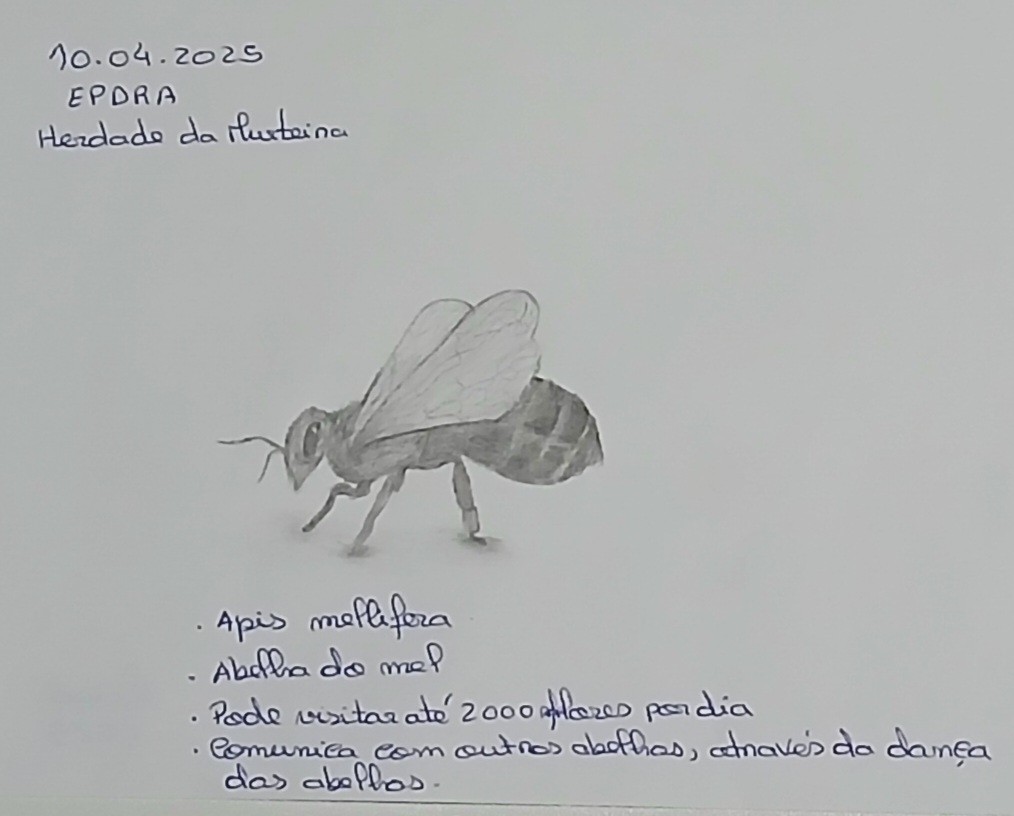 10.04.2025
EPDRA
Herdade da Murteira
. Apis mellifera
. Abelha do mel
. Pode visitar até 2000 flores por dia
. Comunica com outras abelhas, através da dança
das abelhas.